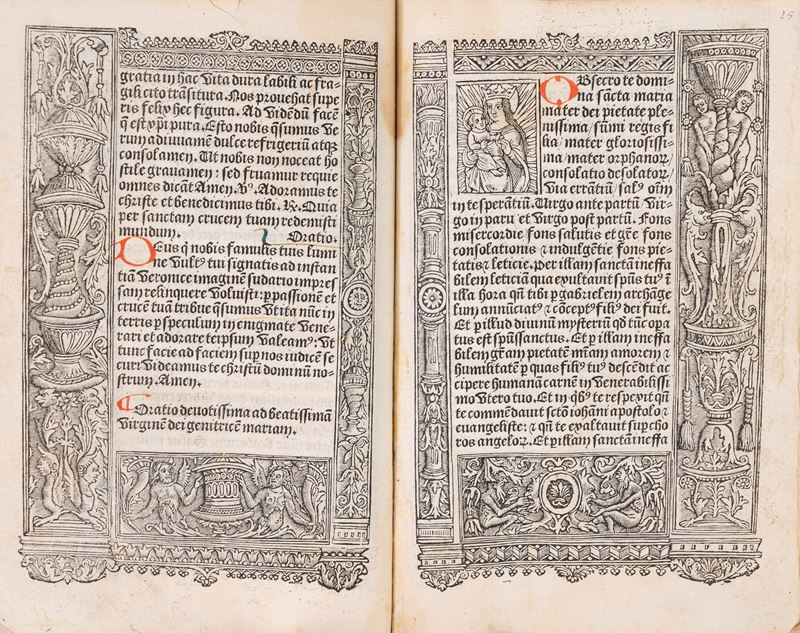 gratia in hac vita dura labili ac fra-
gili cito trãsitura. Nos prouehat supe
ris felix hec figura. Ad vidẽdũ faciẽ
q̃ est xp̃i pura. Esto nobis q̃sumus ve
rum adiuuamẽ dulce refrigeriũ atqȝ
consolamen. Ut nobis non noceat ho
stile grauamen: sed fruamur requie
omnes dicãt Amen. ℣. Adoramus te
christe et benedicimus tibi. R. Quia
per sanctam crucem tuam redemisti
mundum. Oratio.
DEus q̃ nobis famulis tuis lumi
ne vultꝰ tui signatis ad instan
tiã veronice imaginẽ sudario impres
sam relinquere voluisti: ꝑ passionẽ et
crucẽ tuã tribue q̃sumus vt ita nũc in
terris ꝑ speculum in enigmate vene-
rari et adorare te ipsum valeamꝰ: vt
tunc facie ad faciem suꝑ nos iudicẽ se
curi videamus te christũ dominũ no-
strum. Amen.
¶
Oratio deuotissima ad beatissimã
virginẽ dei genitricẽ mariam.
25
OBsecro te domi-
na sãcta maria
mater dei pietate ple-
nissima / sũmi regis fi
lia / mater gloriosissi
ma / mater orphanoꝝ
consolatio desolatoꝝ
Via errãtiũ salꝰ oĩm
in te sperãtiũ. Uirgo ante partũ Vir-
go in partu et Virgo post partũ. Fons
misericordie fons salutis et gr̃e fons
consolationis ⁊ indulgẽtie fons pie-
tatis ⁊ leticie. Per illam sanctã ineffa
bilem leticiãm qua exultauit spũs tuꝰ ĩ
illa hora qñ tibi ꝑ gabrielem archãge
lum annũciatꝰ ⁊ cõceptꝰ filiꝰ dei fuit.
Et ꝑ illud diuinũ mysteriũ qd̃ tũc opa
tus est spũssanctus. Et ꝑ illam ineffa
bilem gr̃am pietatẽ mĩam amorem ⁊
humilitatẽ ꝑ quas filiꝰ tuꝰ descẽdit ac
cipere humanã carnẽ in venerabilissi
mo vtero tuo. Et in qbꝰ te respexit qñ
te commẽdauit sctõ iohãni apostolo ⁊
euangeliste: ⁊ qñ te exaltauit suꝑ cho
ros angeloꝝ. Et ꝑ illam sanctã ineffa